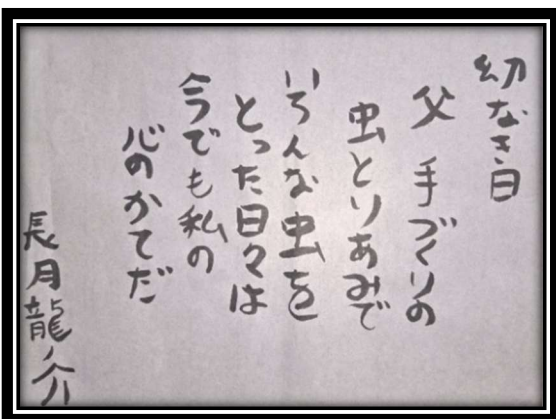 幼なき日
父 手づくりの
虫とりあみで
いろんな虫を
とった日々は
今でも私の
心のかてだ
長月龍ノ介